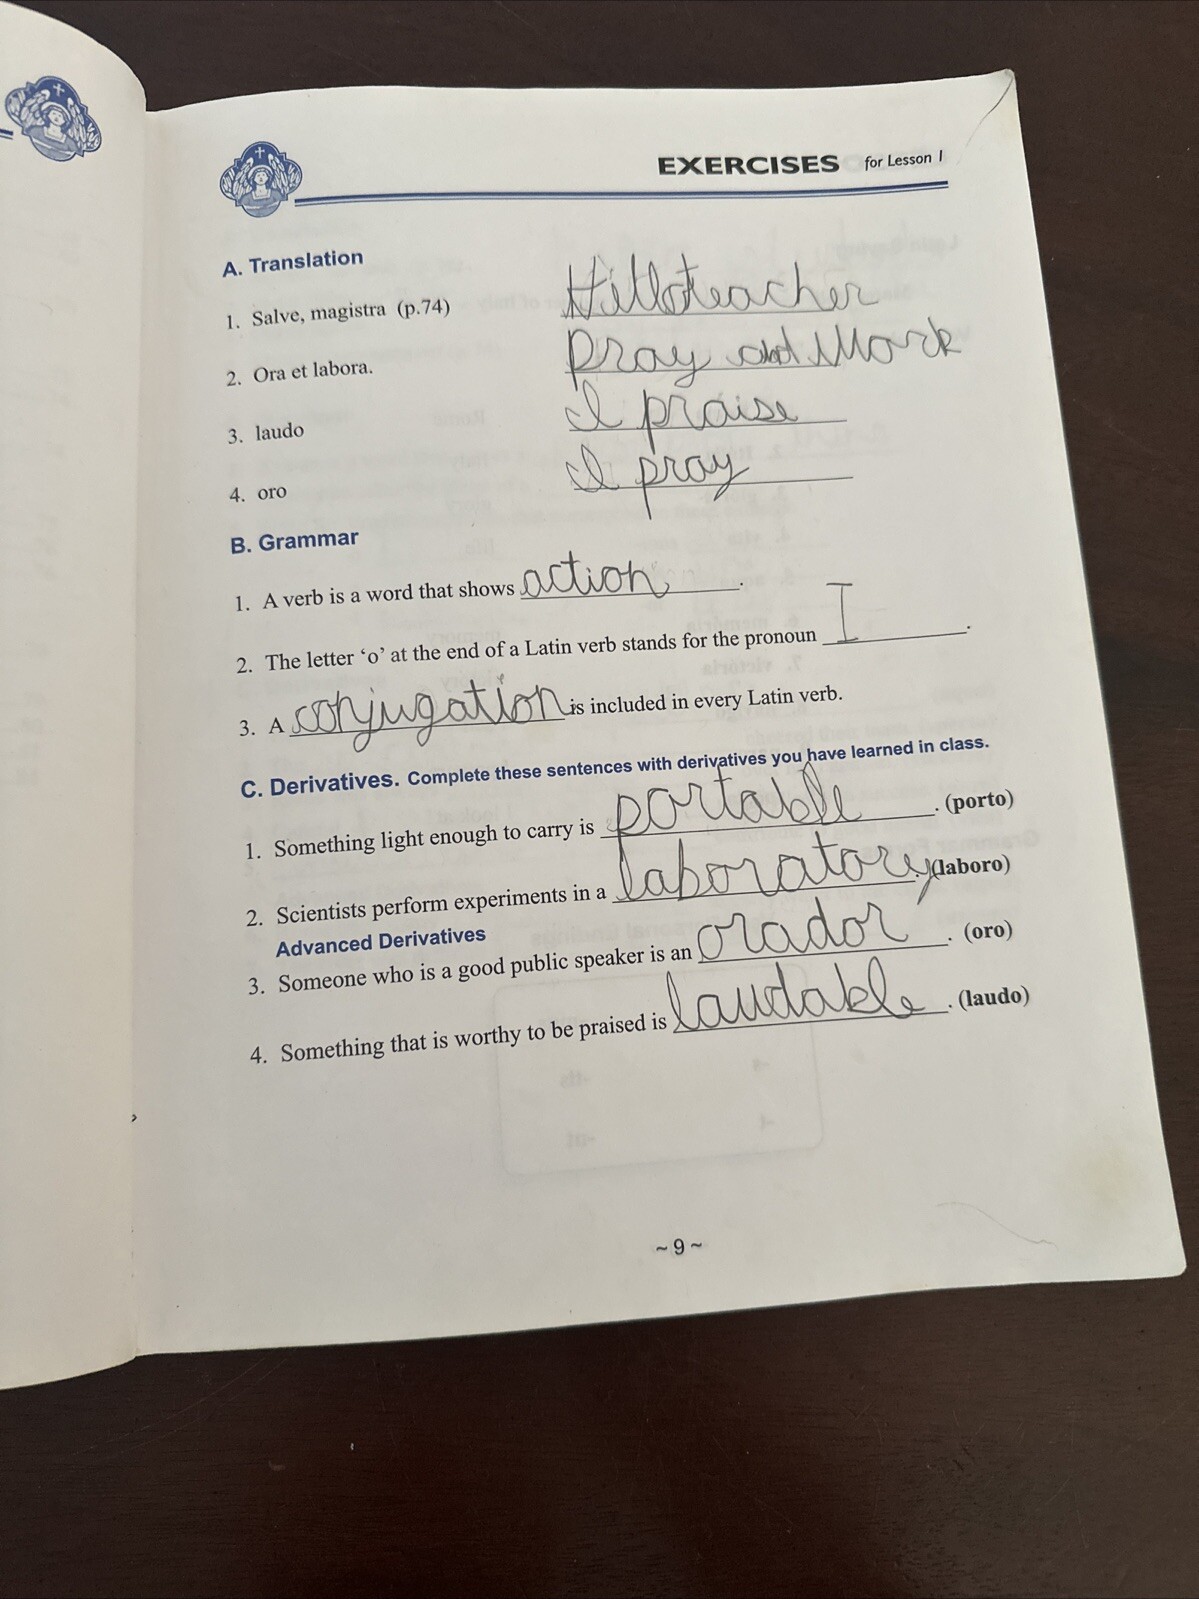 EXERCISES for Lesson 1
A. Translation
1. Salve, magistra (p.74) Hello teacher
2. Ora et labora. Pray and Work
3. laudo I praise
4. oro I pray
B. Grammar
1. A verb is a word that shows action.
2. The letter ‘o’ at the end of a Latin verb stands for the pronoun I.
3. A conjugation is included in every Latin verb.
C. Derivatives. Complete these sentences with derivatives you have learned in class.
1. Something light enough to carry is portable. (porto)
2. Scientists perform experiments in a laboratory. (laboro)
Advanced Derivatives
3. Someone who is a good public speaker is an orador. (oro)
4. Something that is worthy to be praised is laudable. (laudo)
~ 9 ~